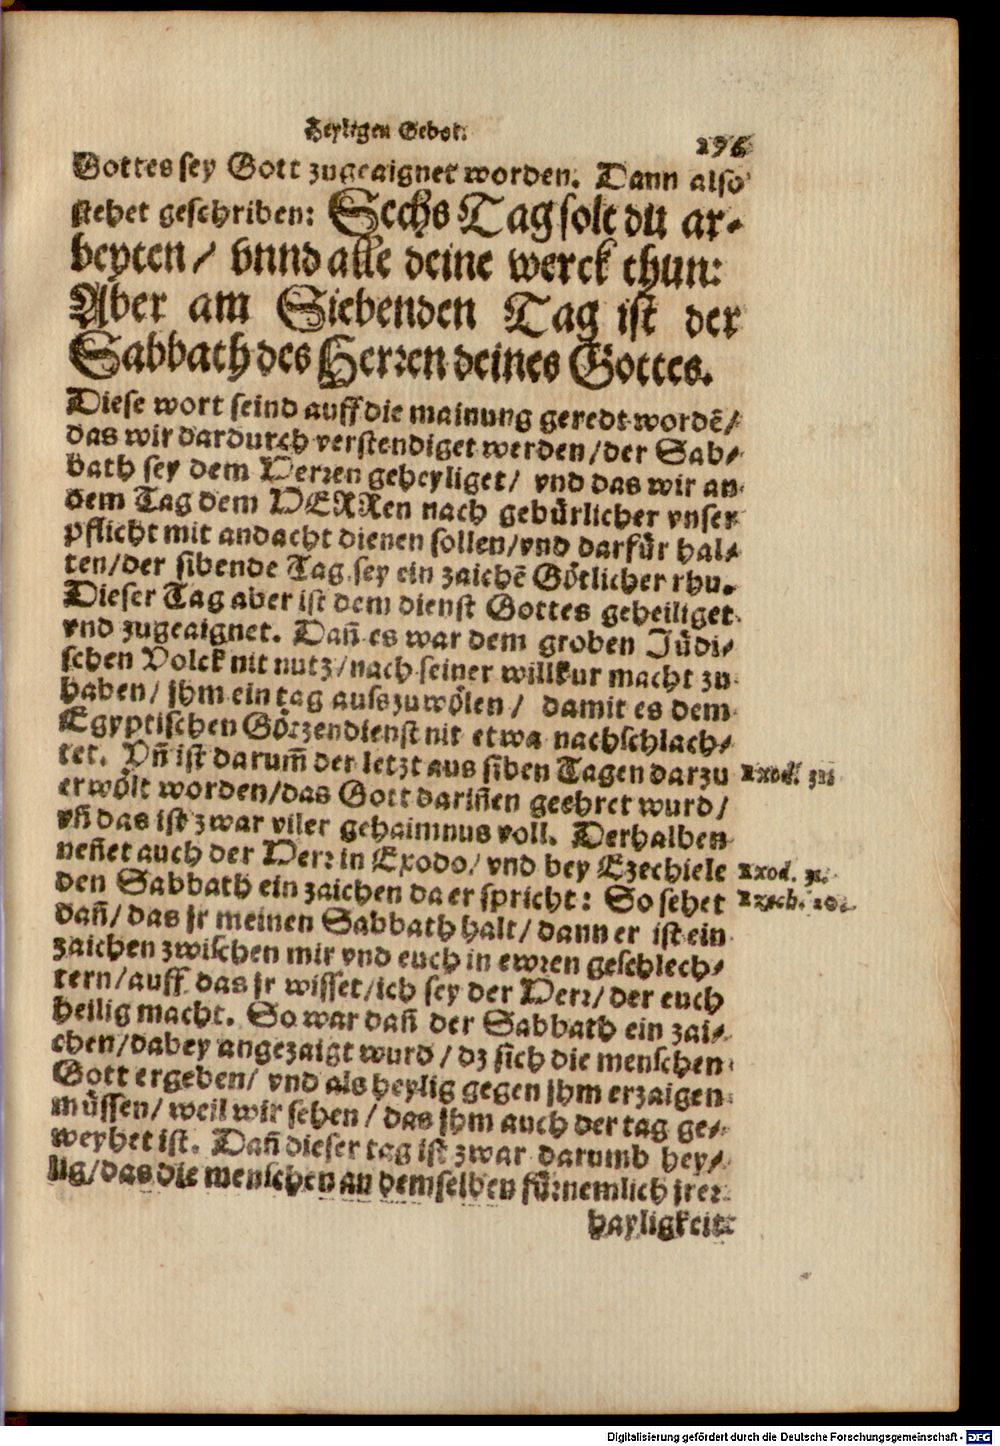 Heyligen Gebot. 276
Gottes sey Gott zugeaignet worden. Dann also
stehet geschriben: Sechs Tag solt du ar⸗
beyten / vnnd alle deine werck thun:
Aber am Siebenden Tag ist der
Sabbath des Herren deines Gottes.
Diese wort seind auff die mainung geredt wordẽ /
das wir dardurch verstendiget werden / der Sab⸗
bath sey dem Herren geheyliget / vnd das wir an
dem Tag dem HERRen nach gebürlicher vnser
pflicht mit andacht dienen sollen / vnd darfür hal⸗
ten / der sibende Tag sey ein zaichẽ Götlicher rhu.
Dieser Tag aber ist dem dienst Gottes geheiliget
vnd zugeaignet. Dañ es war dem groben Jüdi⸗
schen Volck nit nutz / nach seiner willkur macht zu
haben / jhm ein tag auszuwölen / damit es dem
Egyptischen Götzendienst nit etwa nachschlach⸗
tet. Vñ ist darum̃ der letzt aus siben Tagen darzu Exod. 32
erwölt worden / das Gott dariñen geehret wurd /
vñ das ist zwar viler gehaimnus voll. Derhalben
neñet auch der Herr in Exodo / vnd bey Ezechiele Exod. 31.
den Sabbath ein zaichen da er spricht: So sehet Ezech. 20.
dañ / das jr meinen Sabbath halt / dann er ist ein
zaichen zwischen mir vnd euch in ewren geschlech⸗
tern / auff das jr wisset / ich sey der Herr / der euch
heilig macht. So war dañ der Sabbath ein zai⸗
chen / dabey angezaigt wurd / dz sich die menschen
Gott ergeben / vnd als heylig gegen jhm erzaigen
müssen / weil wir sehen / das jhm auch der tag ge⸗
weyhet ist. Dañ dieser tag ist zwar darumb hey⸗
lig / das die menschen an demselben fürnemlich jrer
hayligkeit
Digitalisierung gefördert durch die Deutsche Forschungsgemeinschaft - DFG